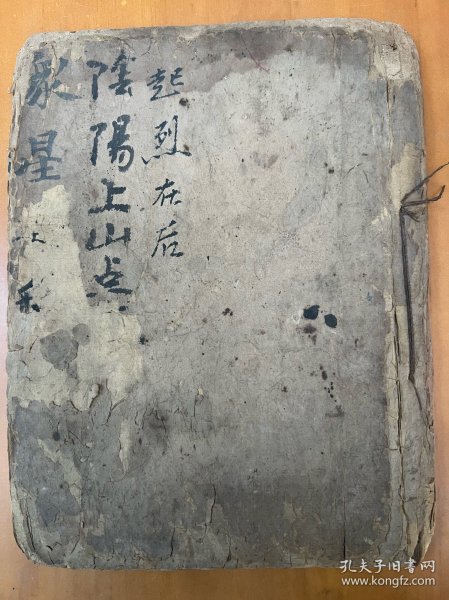 起烈在后
陰陽上山点
眾星
孔夫子旧书网
www.kongfz.com